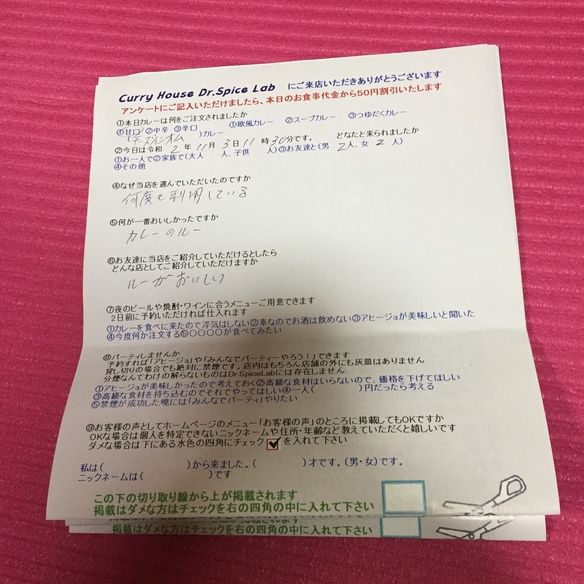 Curry House Dr.Spice Lab にご来店いただきありがとうございます
アンケートにご記入いただけましたら、本日のお食事代金から50円割引いたします
①本日カレーは何をご注文されましたか
①甘口 ②中辛 ③辛口 ①欧風カレー ②スープカレー ③つゆだくカレー
(チーズインオム )カレー
②今日は令和 2 年 11 月 3 日 11 時 30 分です。 どなたと来られましたか
①お一人で②家族で(大人 人、子供 人)③お友達と(男 2 人、女 2 人)
④その他
④なぜ当店を選んでいただいたのですか
何度も利用している
⑤何が一番おいしかったですか
カレーのルー
⑥お友達に当店をご紹介していただけるとしたら
どんな店としてご紹介していただけますか
ルーがおいしい
⑦夜のビールや焼酎・ワインに合うメニューご用意できます
2日前に予約いただければ仕入れます
①カレーを食べに来たので浮気はしない②車なのでお酒は飲めない③アヒージョが美味しいと聞いた
④今度何か注文する⑤〇〇〇〇が食べてみたい
⑧パーティしませんか
予約すれば「アヒージョ」や「みんなでパーティーやろう!」できます
貸し切りの場合でも絶対に禁煙です。店内はもちろん店舗の外にも灰皿はありません
分煙なんてわけの解らないものはDr.SpiceLabには存在しません
①アヒージョが美味しかったので考えておく②高級な食材はいらないので、価格を下げてほしい
③高級な食材を持ち込むのでそれでやってほしい④一人( )円だったら考える
⑤禁煙が成功した暁には「みんなでパーティ」やりたい
⑨お客様の声としてホームページのメニュー「お客様の声」のところに掲載してもOKですか
OKな場合は個人を特定できないニックネームや住所・年齢など教えていただくと嬉しいです
ダメな場合は下にある水色の四角にチェック✔を入れて下さい
私は( )から来ました。( )才です。(男・女)です。
ニックネームは( )です
この下の切り取り線から上が掲載されます
掲載はダメな方はチェックを右の四角の中に入れて下さい
掲載はダメな方はチェックを右の四角の中に入れて下さい